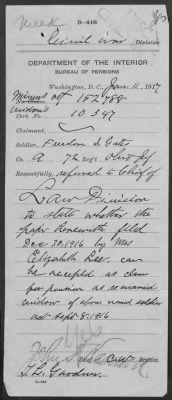 Week
3-416
Civil War Division
DEPARTMENT OF THE INTERIOR
BUREAU OF PENSIONS
Washington, D. C., Jan 11, 1917
Minors ctf 152988
Widow's
Cert. No. 10347
Claimant,
Soldier, Freedom S. Gates
Co. A 72 Regt Ohio Inf
Respectfully referred to Chief of
Law Division
to state whether the
paper herewith filed
Dec 30, 1916 by Mrs
Elizabeth Lee can
be accepted as claim
for pension as remarried
widow of above named soldier
act Sept 8, 1916
Chief Civil War Division
S. L. Gardner